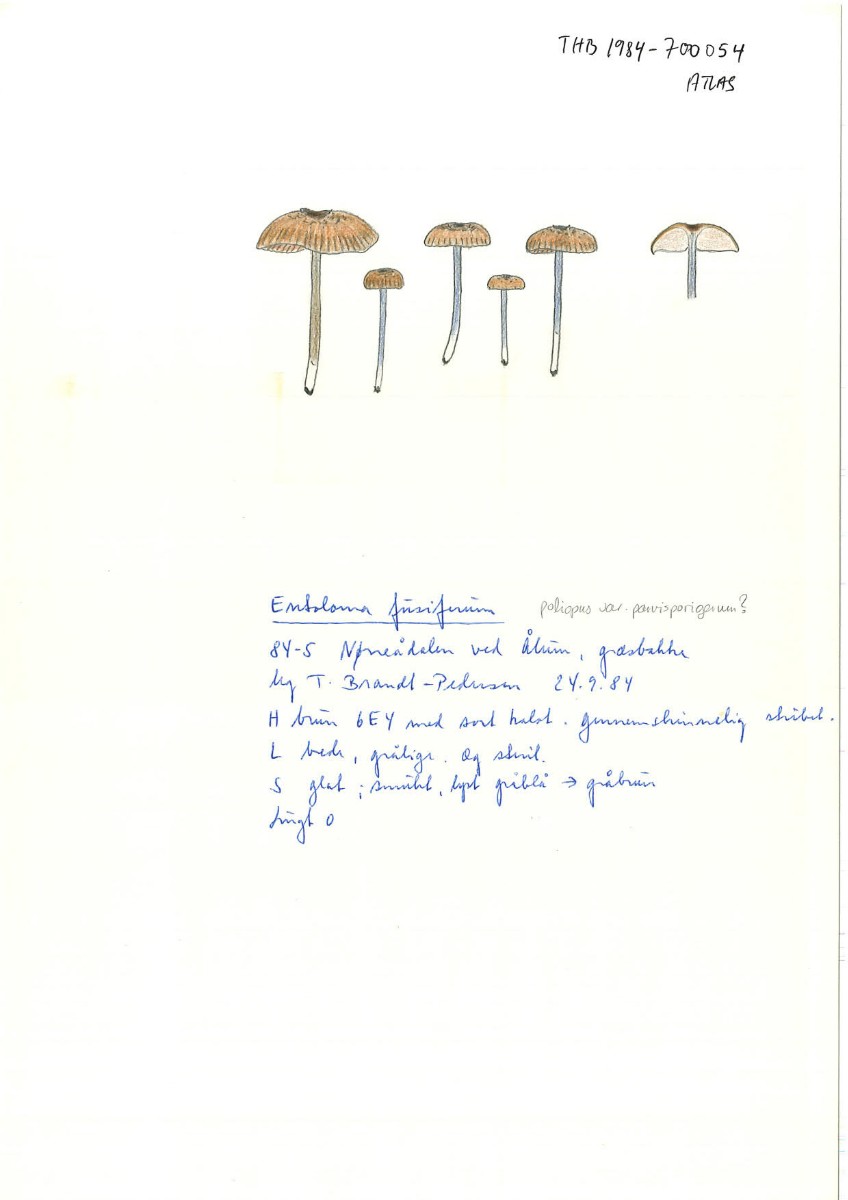 THB 1984-700054
ATLAS
Entoloma fusiferum poliopus var. parvisporigerum?
84-5 Nørreådalen ved Ålum, græsbakke
leg T. Brandt-Pedersen 24.9.84
H brun 6E4 med sort hulot. gennemskinnelig stribet.
L brede, grålige. Æg steril.
S glat; smukt, lyst gråblå → gråbrun
Lugt 0